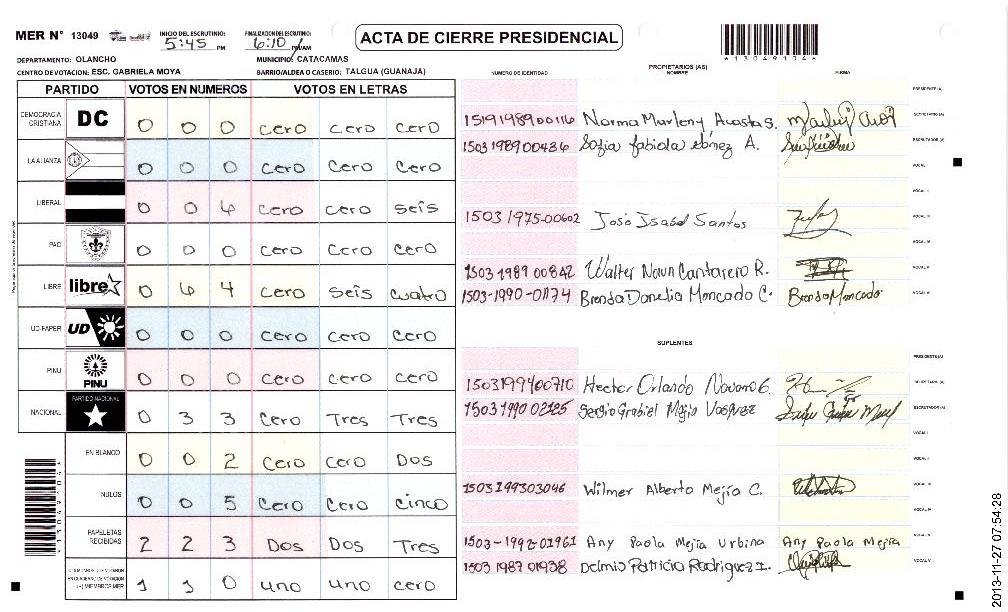 MER N° 13049
INICIO DEL ESCRUTINIO: 5:45 PM
FINALIZACION DEL ESCRUTINIO: 6:10 PM/AM
ACTA DE CIERRE PRESIDENCIAL
*13049104*
DEPARTAMENTO: OLANCHO
MUNICIPIO: CATACAMAS
CENTRO DE VOTACION: ESC. GABRIELA MOYA
BARRIO/ALDEA O CASERIO: TALGUA (GUANAJA)
PARTIDO VOTOS EN NUMEROS VOTOS EN LETRAS
DEMOCRACIA CRISTIANA DC 0 0 0 cero cero cero
LA ALIANZA 0 0 0 cero cero cero
LIBERAL 0 0 6 cero cero seis
PAC 0 0 0 cero cero cero
LIBRE libre 0 6 4 cero seis cuatro
UD-FAPER UD 0 0 0 cero cero cero
PINU PINU 0 0 0 cero cero cero
NACIONAL PARTIDO NACIONAL 0 3 3 cero Tres Tres
EN BLANCO 0 0 2 cero cero Dos
NULOS 0 0 5 cero cero cinco
PAPELETAS RECIBIDAS 2 2 3 Dos Dos Tres
CIUDADANOS QUE VOTARON EN CUADERNO DE VOTACION (+) MIEMBROS MER 1 1 0 uno uno cero
PROPIETARIOS (AS)
NUMERO DE IDENTIDAD NOMBRE FIRMA
PRESIDENTE (A)
1519198900116 Norma Marleny Acosta S. SECRETARIO (A)
1503198900486 Sofia fabiola Gómez A. ESCRUTADOR (A)
VOCAL I
VOCAL II
1503 1975-00602 José Isabel Santos VOCAL III
VOCAL IV
1503 1989 00842 Walter Noun Cantarero R. VOCAL V
1503-1990-01174 Brenda Danelia Moncada C. Brenda Moncada
SUPLENTES
PRESIDENTE (A)
1503199400710 Hector Orlando Navarro G. SECRETARIO (A)
1503 1990 02125 Sergio Grabiel Mejia Vasquez ESCRUTADOR (A)
VOCAL I
VOCAL II
1503199303046 Wilmer Alberto Mejía C. VOCAL III
VOCAL IV
1503-1992-01961 Any Paola Mejia Urbina Any Paola Mejia
1503 1987 01938 Delmis Patricia Rodriguez I. VOCAL V
*13049104*
2013-11-27 07:54:28